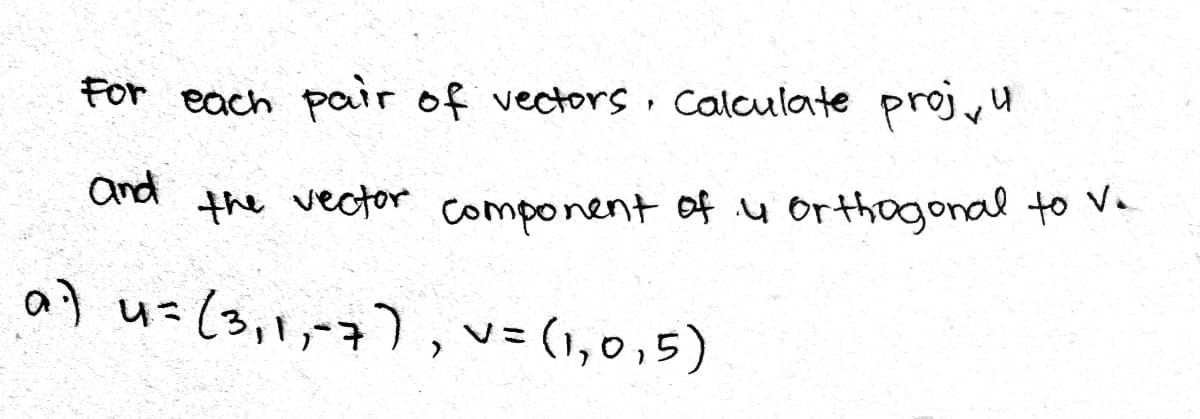 For each pair of vectors, Calculate proj_v u
and the vector component of u orthogonal to v.
a) u=(3,1,-7), v=(1,0,5)